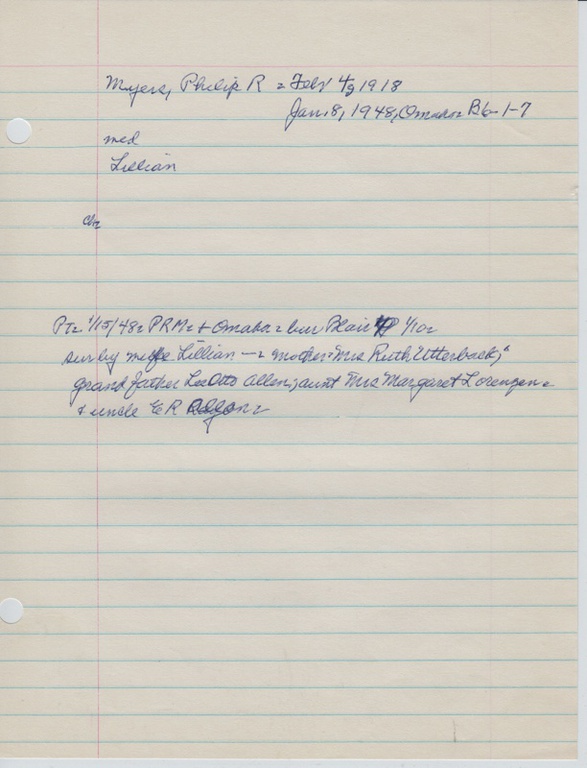 Myers, Philip R = Feb 4/9 1918
Jan. 8, 1948, Omaha = B6-1-7
med
Lillian
ch=
PT= 1/15/48= PRM= + Omaha = bur Blair 1/10=
sur by wife Lillian — = mother= Mrs Ruth Utterback;
grand father Otto Allen; aunt Mrs Margaret Lorenzen =
+ uncle E R Allen=